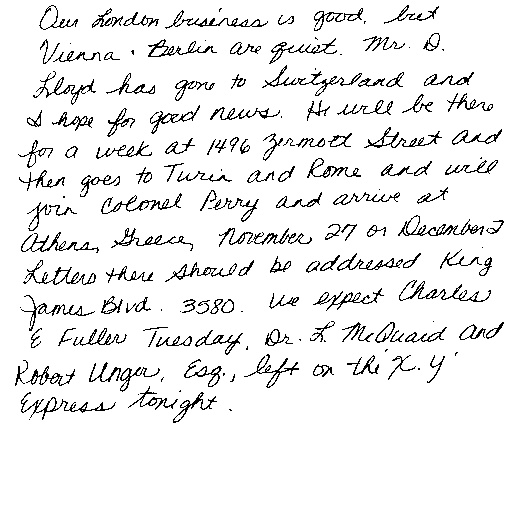 Our London business is good, but
Vienna . Berlin are quiet. Mr. D.
Lloyd has gone to Switzerland and
I hope for good news. He will be there
for a week at 1496 Zermott Street and
then goes to Turin and Rome and will
join Colonel Perry and arrive at
Athens, Greece, November 27 or December 2
Letters there should be addressed King
James Blvd. 3580. We expect Charles
E Fuller Tuesday. Dr. L. McQuaid and
Robert Unger, Esq., left on the 'X.Y.'
Express tonight.